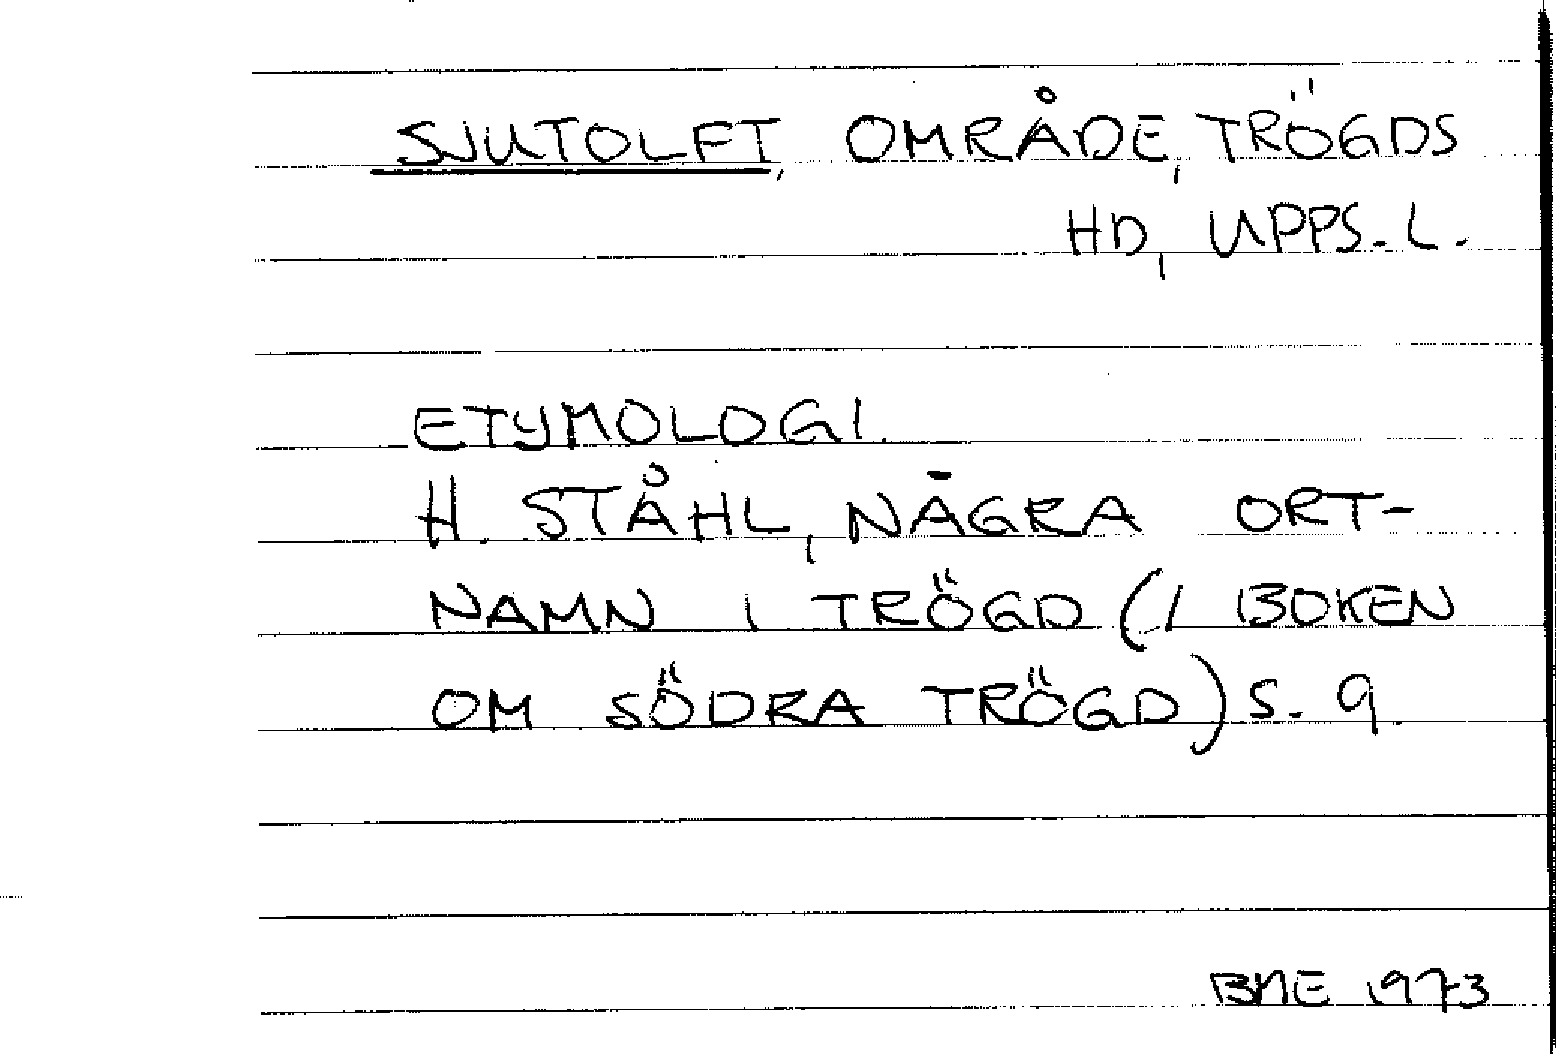 SJUTOLFT, OMRÅDE, TRÖGDS
HD, UPPS. L.
ETYMOLOGI.
H. STÅHL, NÅGRA ORT-
NAMN I TRÖGD (I BOKEN
OM SÖDRA TRÖGD) S. 9.
BME 1973